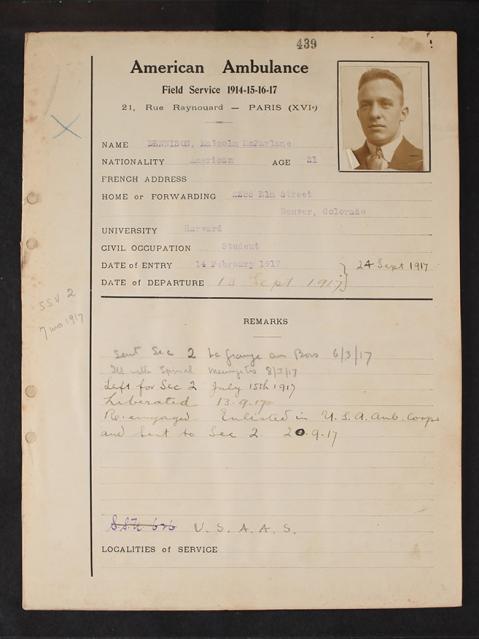 439
American Ambulance
Field Service 1914-15-16-17
21, Rue Raynouard — PARIS (XVIe)
NAME DENNISON, Malcolm McFarlane
NATIONALITY American AGE 21
FRENCH ADDRESS
HOME OR FORWARDING Elm Street
Denver, Colorado
UNIVERSITY Harvard
CIVIL OCCUPATION Student
DATE OF ENTRY 14 February 1917
DATE OF DEPARTURE 13 Sept 1917 } 24 Sept 1917
SSU 2
7 mo 1917
REMARKS
Sent Sec 2 La Grange aux Bois 6/3/17
Ill with Spinal 8/5/17
Left for Sec 2 July 15th 1917
Liberated 13.9.17
Re-engaged Enlisted in U.S.A. Amb. Corps
and sent to Sec 2. 20.9.17
S.S.U 626 U.S.A.A.S.
LOCALITIES OF SERVICE